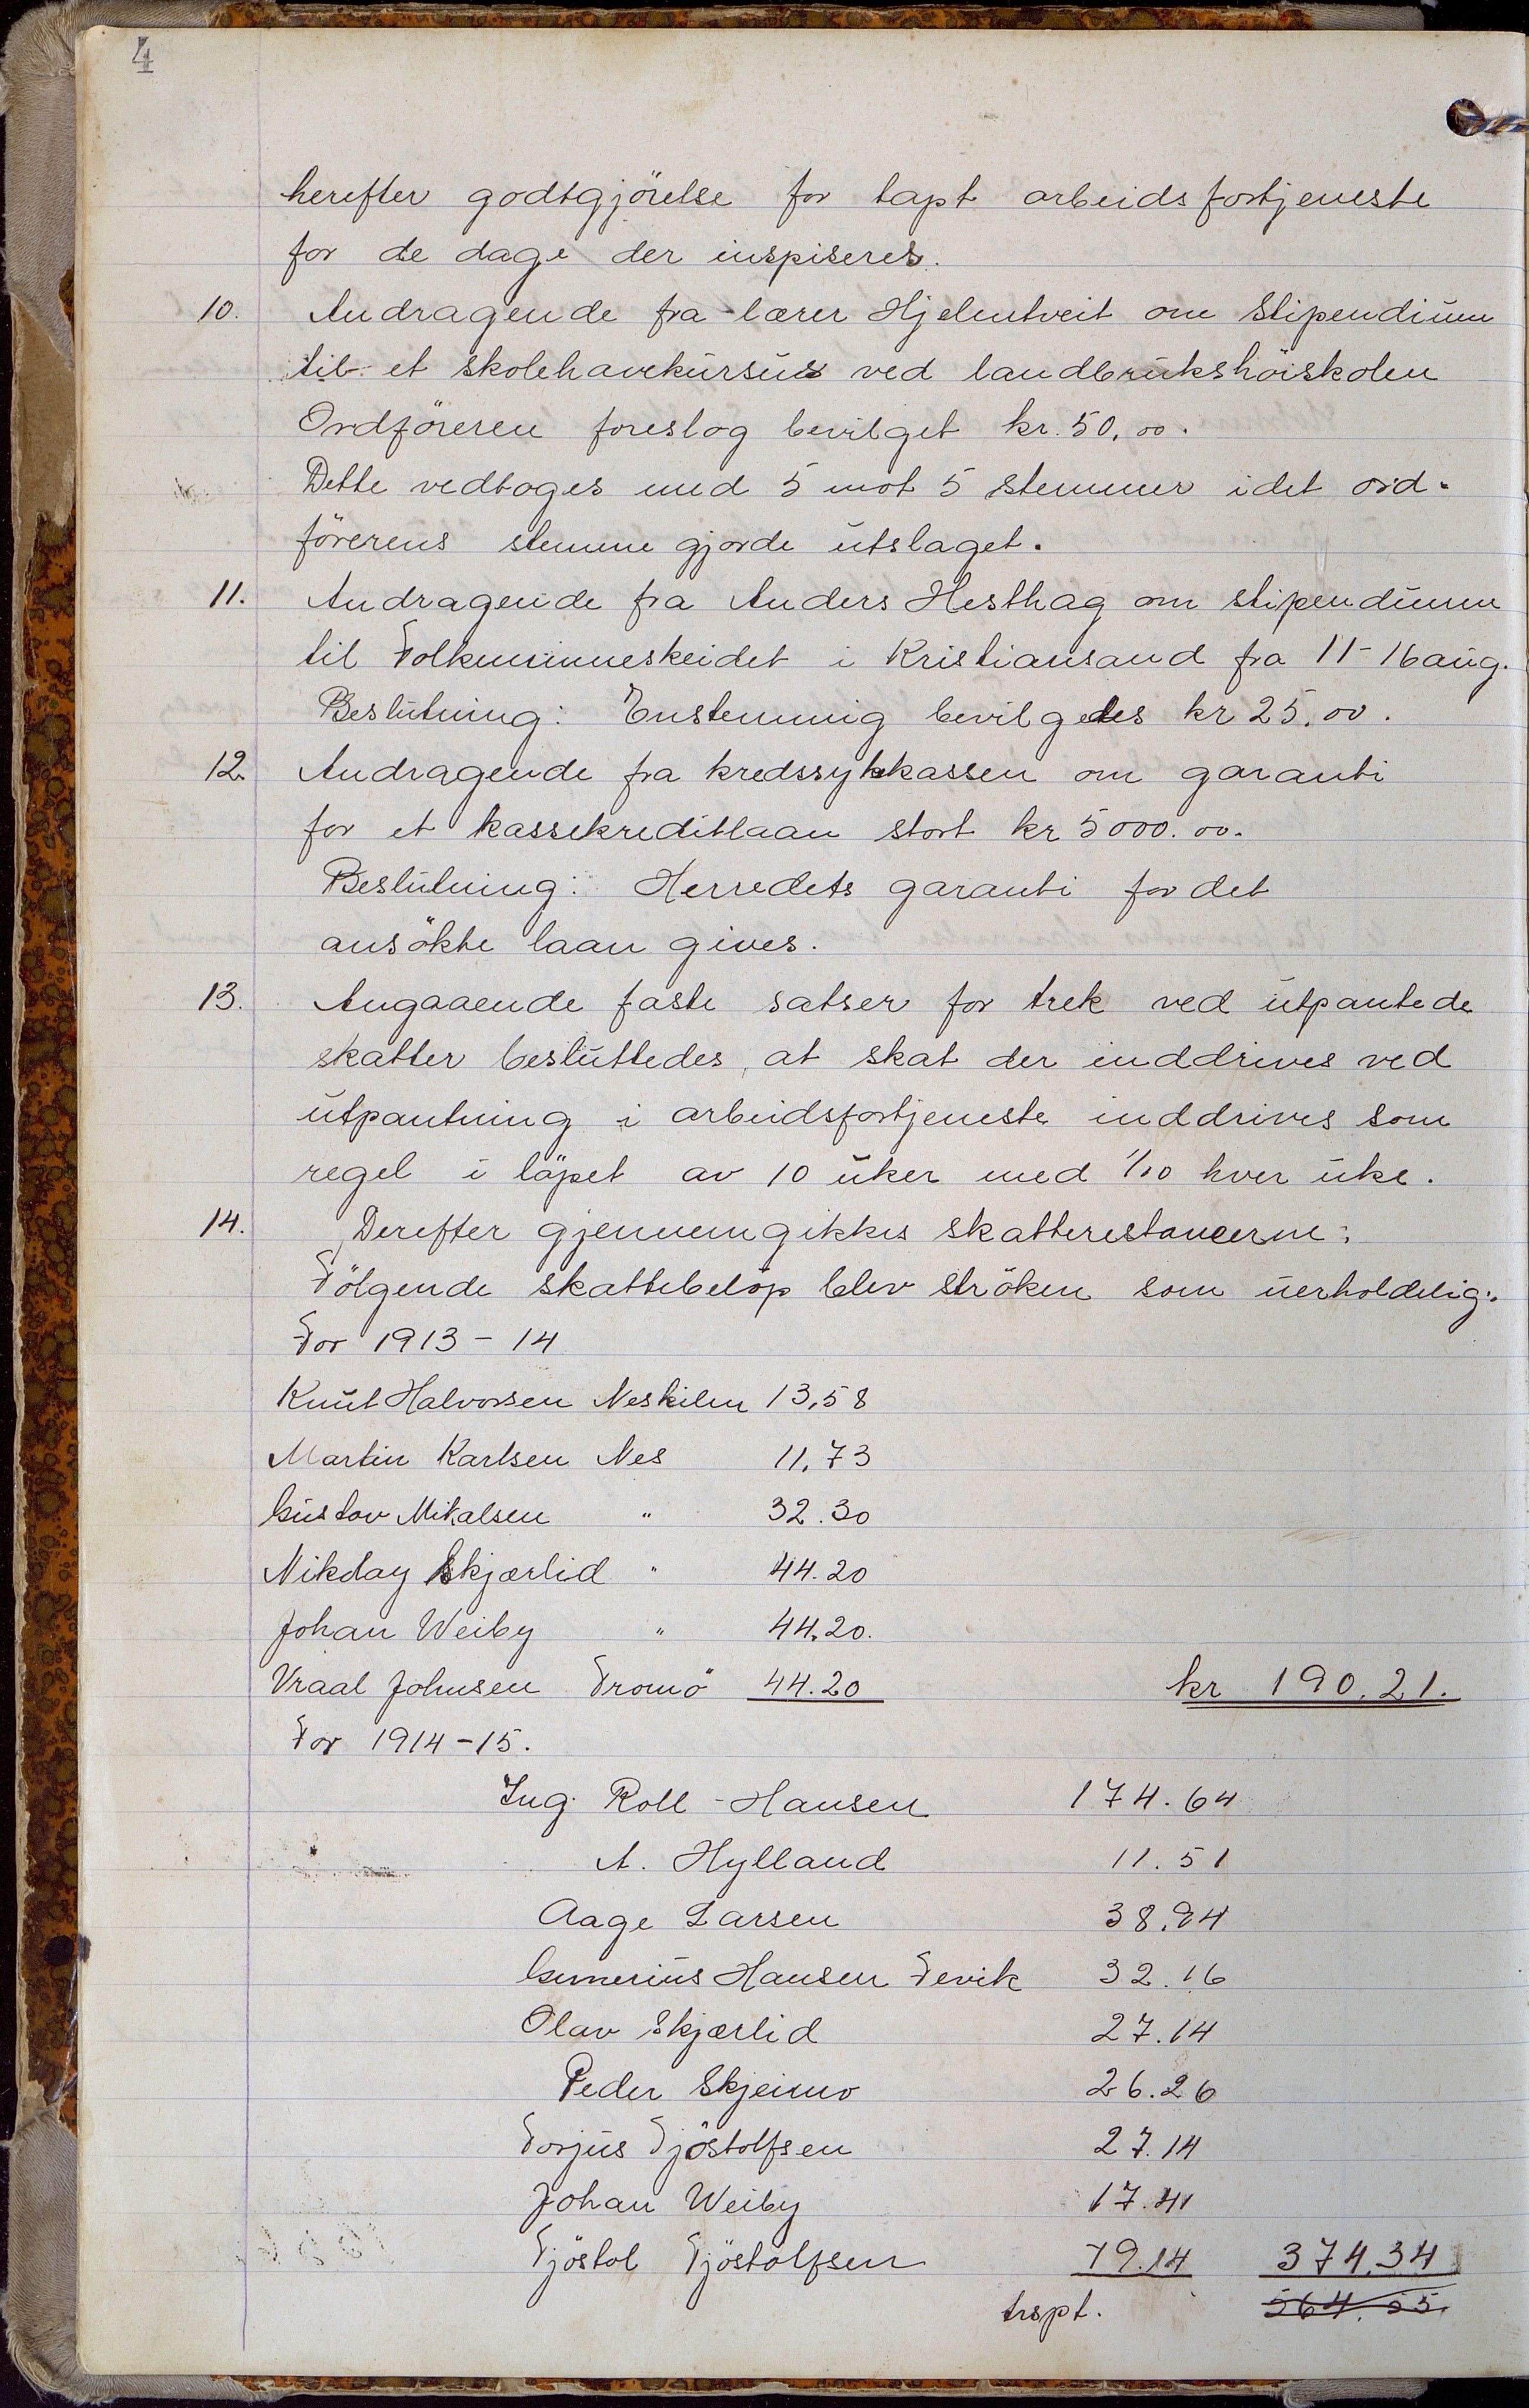 4
herefter godtgjörelse for tapt arbeidsfortjeneste
for de dage der inspiseres.
10. Andragende fra lærer Hjelmtveit om stipendium
til et skolehavekursus ved landbrukshöiskolen
Ordföreren foreslog bevilget kr. 50,00.
Dette vedtoges med 5 mot 5 stemmer idet ord-
förerens stemme gjorde utslaget.
11. Andragende fra Anders Hesthag om stipendium
til Folkeminneskeidet i Kristiansand fra 11-16 aug.
Beslutning: Enstemmig bevilgedes kr 25.00.
12. Andragende fra kredssykekassen om garanti
for et kassekreditlaan stort kr 5000.00.
Beslutning: Herredets garanti for det
ansökte laan gives.
13. Angaaende faste satser for trek ved utpantede
skatter besluttedes, at skat der inddrives ved
utpantning i arbeidsfortjeneste inddrives som
regel i löpet av 10 uker med 1/10 hver uke.
14. Derefter gjennemgikkes skatterestancerne:
Fölgende skattebelöp blev ströken som uerholdelig:
For 1913-14
Knut Halvorsen Neskilen 13,58
Martin Karlsen Nes 11,73
Gustav Mikalsen " 32.30
Nikolay Skjærlid " 44.20
Johan Weiby " 44.20.
Vraal Johnsen Tromö 44.20 kr 190.21.
For 1914-15.
Ing. Roll-Hansen 174.64
A. Hylland 11.51
Aage Larsen 38.94
Gunerius Hansen Fevik 32.16
Olav Skjærlid 27.14
Peder Skjeimo 26.26
Torjus Tjöstolfsen 27.14
Johan Weiby 17.41
Tjöstol Tjöstolfsen 19.14 374.34
trspt. 564.55